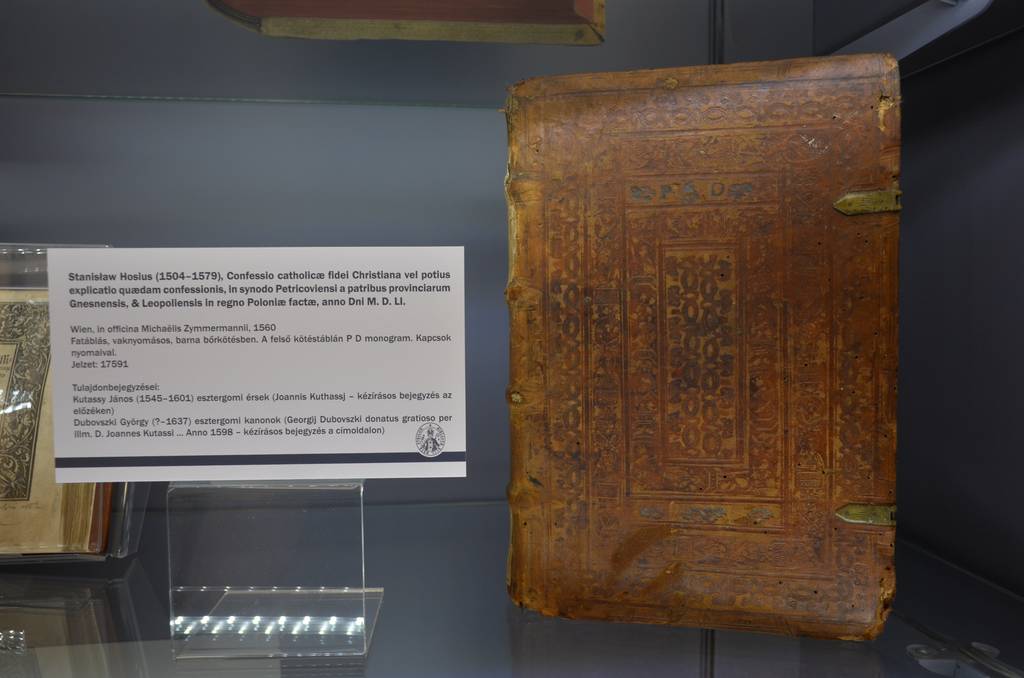 Stanisław Hosius (1504–1579), Confessio catholicæ fidei Christiana vel potius
explicatio quædam confessionis, in synodo Petricoviensi a patribus provinciarum
Gnesnensis, & Leopoliensis in regno Poloniæ factæ, anno Dni M. D. LI.
Wien, in officina Michaëlis Zymmermannii, 1560
Fatáblás, vaknyomásos, barna bőrkötésben. A felső kötéstáblán P D monogram. Kapcsok
nyomaival.
Jelzet: 17591
Tulajdonbejegyzései:
Kutassy János (1545–1601) esztergomi érsek (Joannis Kuthassj – kézírásos bejegyzés az
előzéken)
Dubovszki György (?–1637) esztergomi kanonok (Georgij Dubovszki donatus gratioso per
illm. D. Joannes Kutassi ... Anno 1598 – kézírásos bejegyzés a címoldalon)
P D